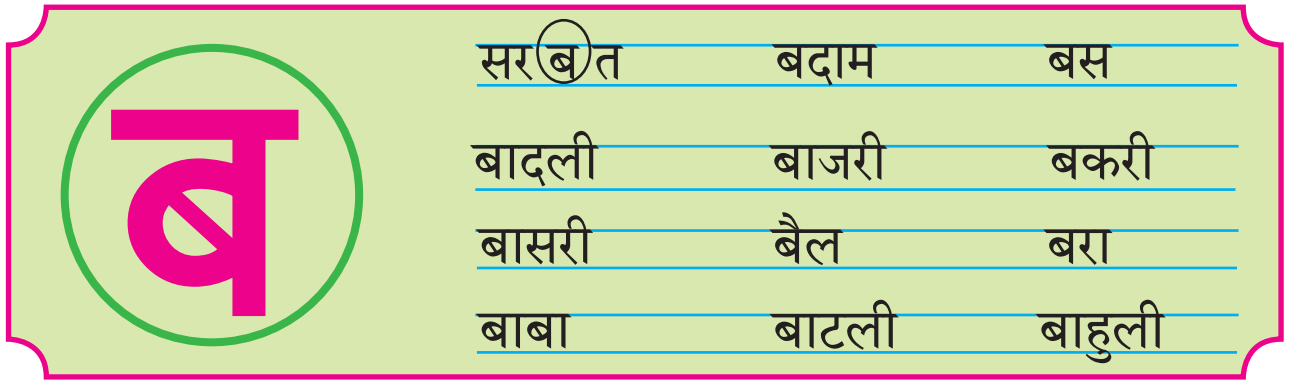 ब
सरबत बदाम बस
बादली बाजरी बकरी
बासरी बैल बरा
बाबा बाटली बाहुली